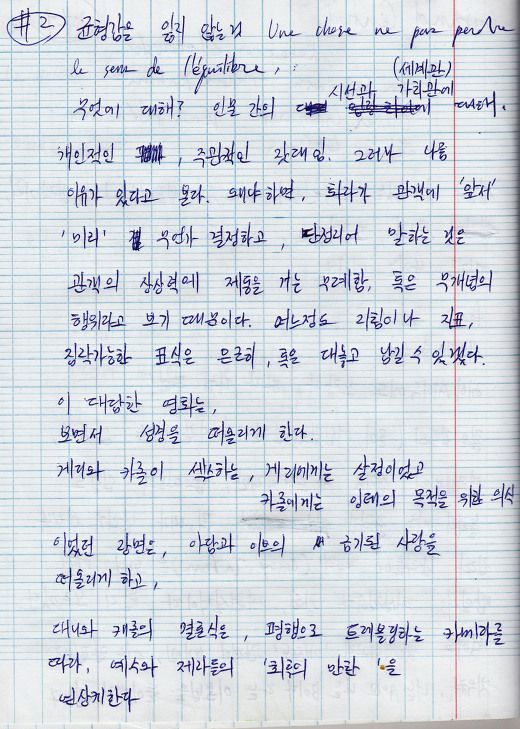 #2. 균형감을 잃지 않는것 Une chose ne pas perdre
le sens de l'équilibre, :
(세계관)
시선과 가치관에
무엇에 대해? 인물 간의 대해.
개인적인 , 주관적인 잣대임. 그러나 나름
이유가 있다고 본다. 왜냐하면, 화자가 관객에 '앞서'
'미리' 무언가 결정하고, 단정지어 말하는 것은
관객의 상상력에 제동을 거는 무례함, 혹은 무개념의
행위라고 보기 때문이다. 어느정도 리힐이나 지표,
짐작가능한 표식은 은근히, 혹은 대놓고 남길 수 있겠다.
이 대담한 영화는,
보면서 성경을 떠올리게 한다.
게리와 카롤이 섹스하는, 게리에게는 살정이었고
카롤에게는 잉태의 목적을 위한 의식
이었던 장면은, 아담과 이브의 금기된 사랑을
떠올리게 하고,
대니와 캐롤의 결혼식은, 평행으로 트래블링하는 카메라를
따라, 예수와 제자들의 '최후의 만찬'을
연상케한다